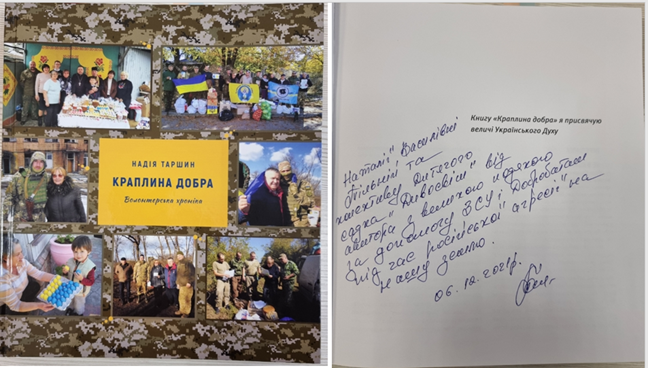 НАДІЯ ТАРШИН
КРАПЛИНА ДОБРА
Волонтерська хроніка
Книгу «Краплина добра» я присвячую
величі Українського Духу
Наталії Василівні
та
колективу Дитячого
садка "Дивосвіт" від
автора з великою подякою
за допомогу ЗСУ і Добробатам
під час російської агресії на
нашу землю.
06.10.2021р.